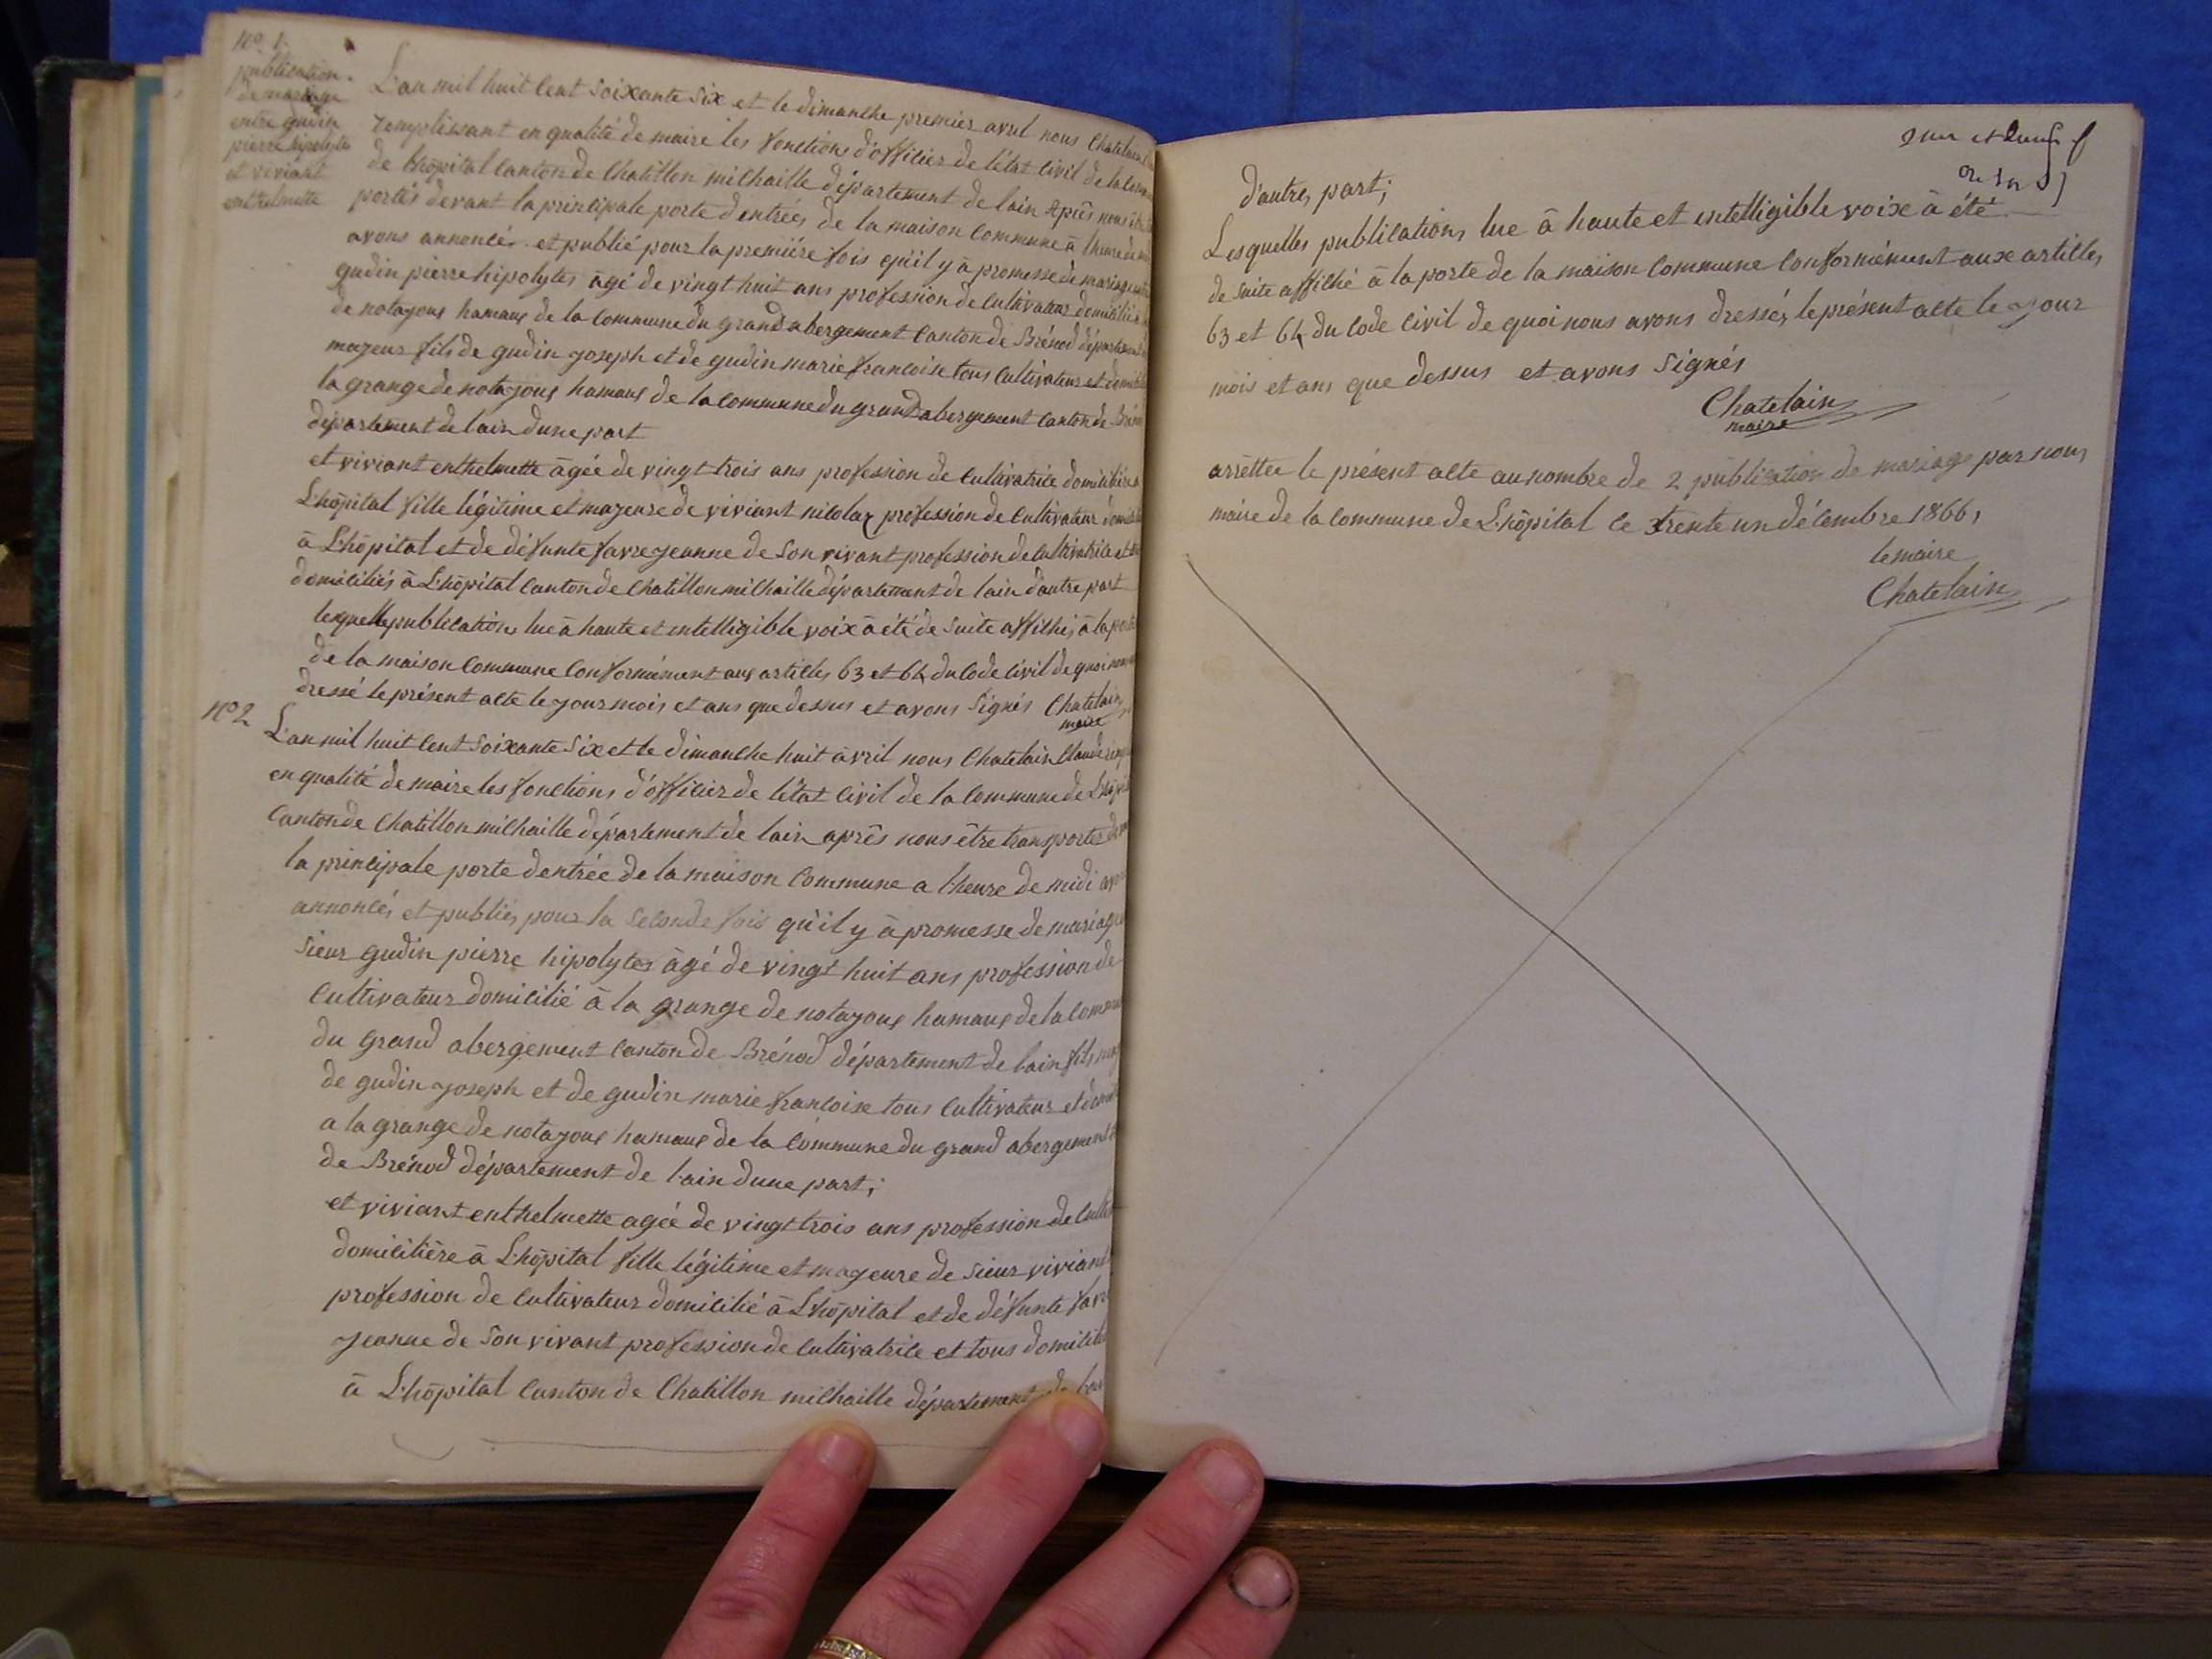 No 1.
publication
de mariage
entre gudin
pierre hipolyte
et viviant
enthelmette
L'an mil huit cent soixante six et le dimanche premier avril nous Chatelain
remplissant en qualité de maire les fonctions d'officier de l'état civil de la
de L'hôpital canton de Chatillon michaille département de lain après nous
portés devant la principale porte d'entrée de la maison commune à l'heure de
avons annoncés et publié pour la première fois qu'il y à promesse de mariage
gudin pierre hipolytes âgé de vingt huit ans profession de cultivateur domicilié
de notajoux hamaux de la commune du grand abergement canton de Brénod
majeur fils de gudin joseph et de gudin marie francoise tous cultivateur et
la grange de notajoux hamaux de la commune du grand abergement canton de
département de lain dune part
et viviant enthelmette âgée de vingt trois ans profession de cultivatrice domicilière
L'hôpital fille légitime et majeure de viviant nicolas profession de cultivateur
à L'hôpital et de défunte favre jeanne de son vivant profession de cultivatrice et
domiciliés à L'hôpital canton de Chatillon michaille département de lain d'autre part
lequelle publications lue à haute et intelligible voix à été de suite affichés à la
de la maison commune conformément aux articles 63 et 64 du code civil de quoi
dressé le présent acte le jour mois et ans que dessus et avons signés Chatelain
maire
No 2
L'an mil huit cent soixante six et le dimanche huit avril nous Chatelain Claude
en qualité de maire les fonctions d'officier de l'état civil de la commune de
canton de Chatillon michaille département de lain après nous être transportés
la principale porte dentrée de la maison commune a l'heure de midi
annoncés et publiés pour la seconde fois qu'il y à promesse de mariage
sieur gudin pierre hipolytes âgé de vingt huit ans profession de
cultivateur domicilié à la grange de notajoux hamaux de la
du grand abergement canton de Brénod département de lain fils
de gudin joseph et de gudin marie francoise tous cultivateur et
a la grange de notajoux hamaux de la commune du grand abergement
de Brénod département de l'ain dune part;
et viviant enthelmette agée de vingt trois ans profession de
domicilière à L'hôpital fille légitime et majeure de sieur viviant
profession de cultivateur domicilié à L'hôpital et de défunte
jeanne de son vivant profession de cultivatrice et tous
à L'hôpital canton de Chatillon michaille département
d'autres part;
Lesquelles publications lue à haute et intelligible voix à été
de suite affiché à la porte de la maison commune conformément aux articles
63 et 64 du code civil de quoi nous avons dressés le présent acte le jour
mois et ans que dessus et avons signés
Chatelain
maire
arrêtter le présent acte au nombre de 2 publication de mariage par nous
maire de la commune de L'hôpital le trente un décembre 1866,
le maire
Chatelain